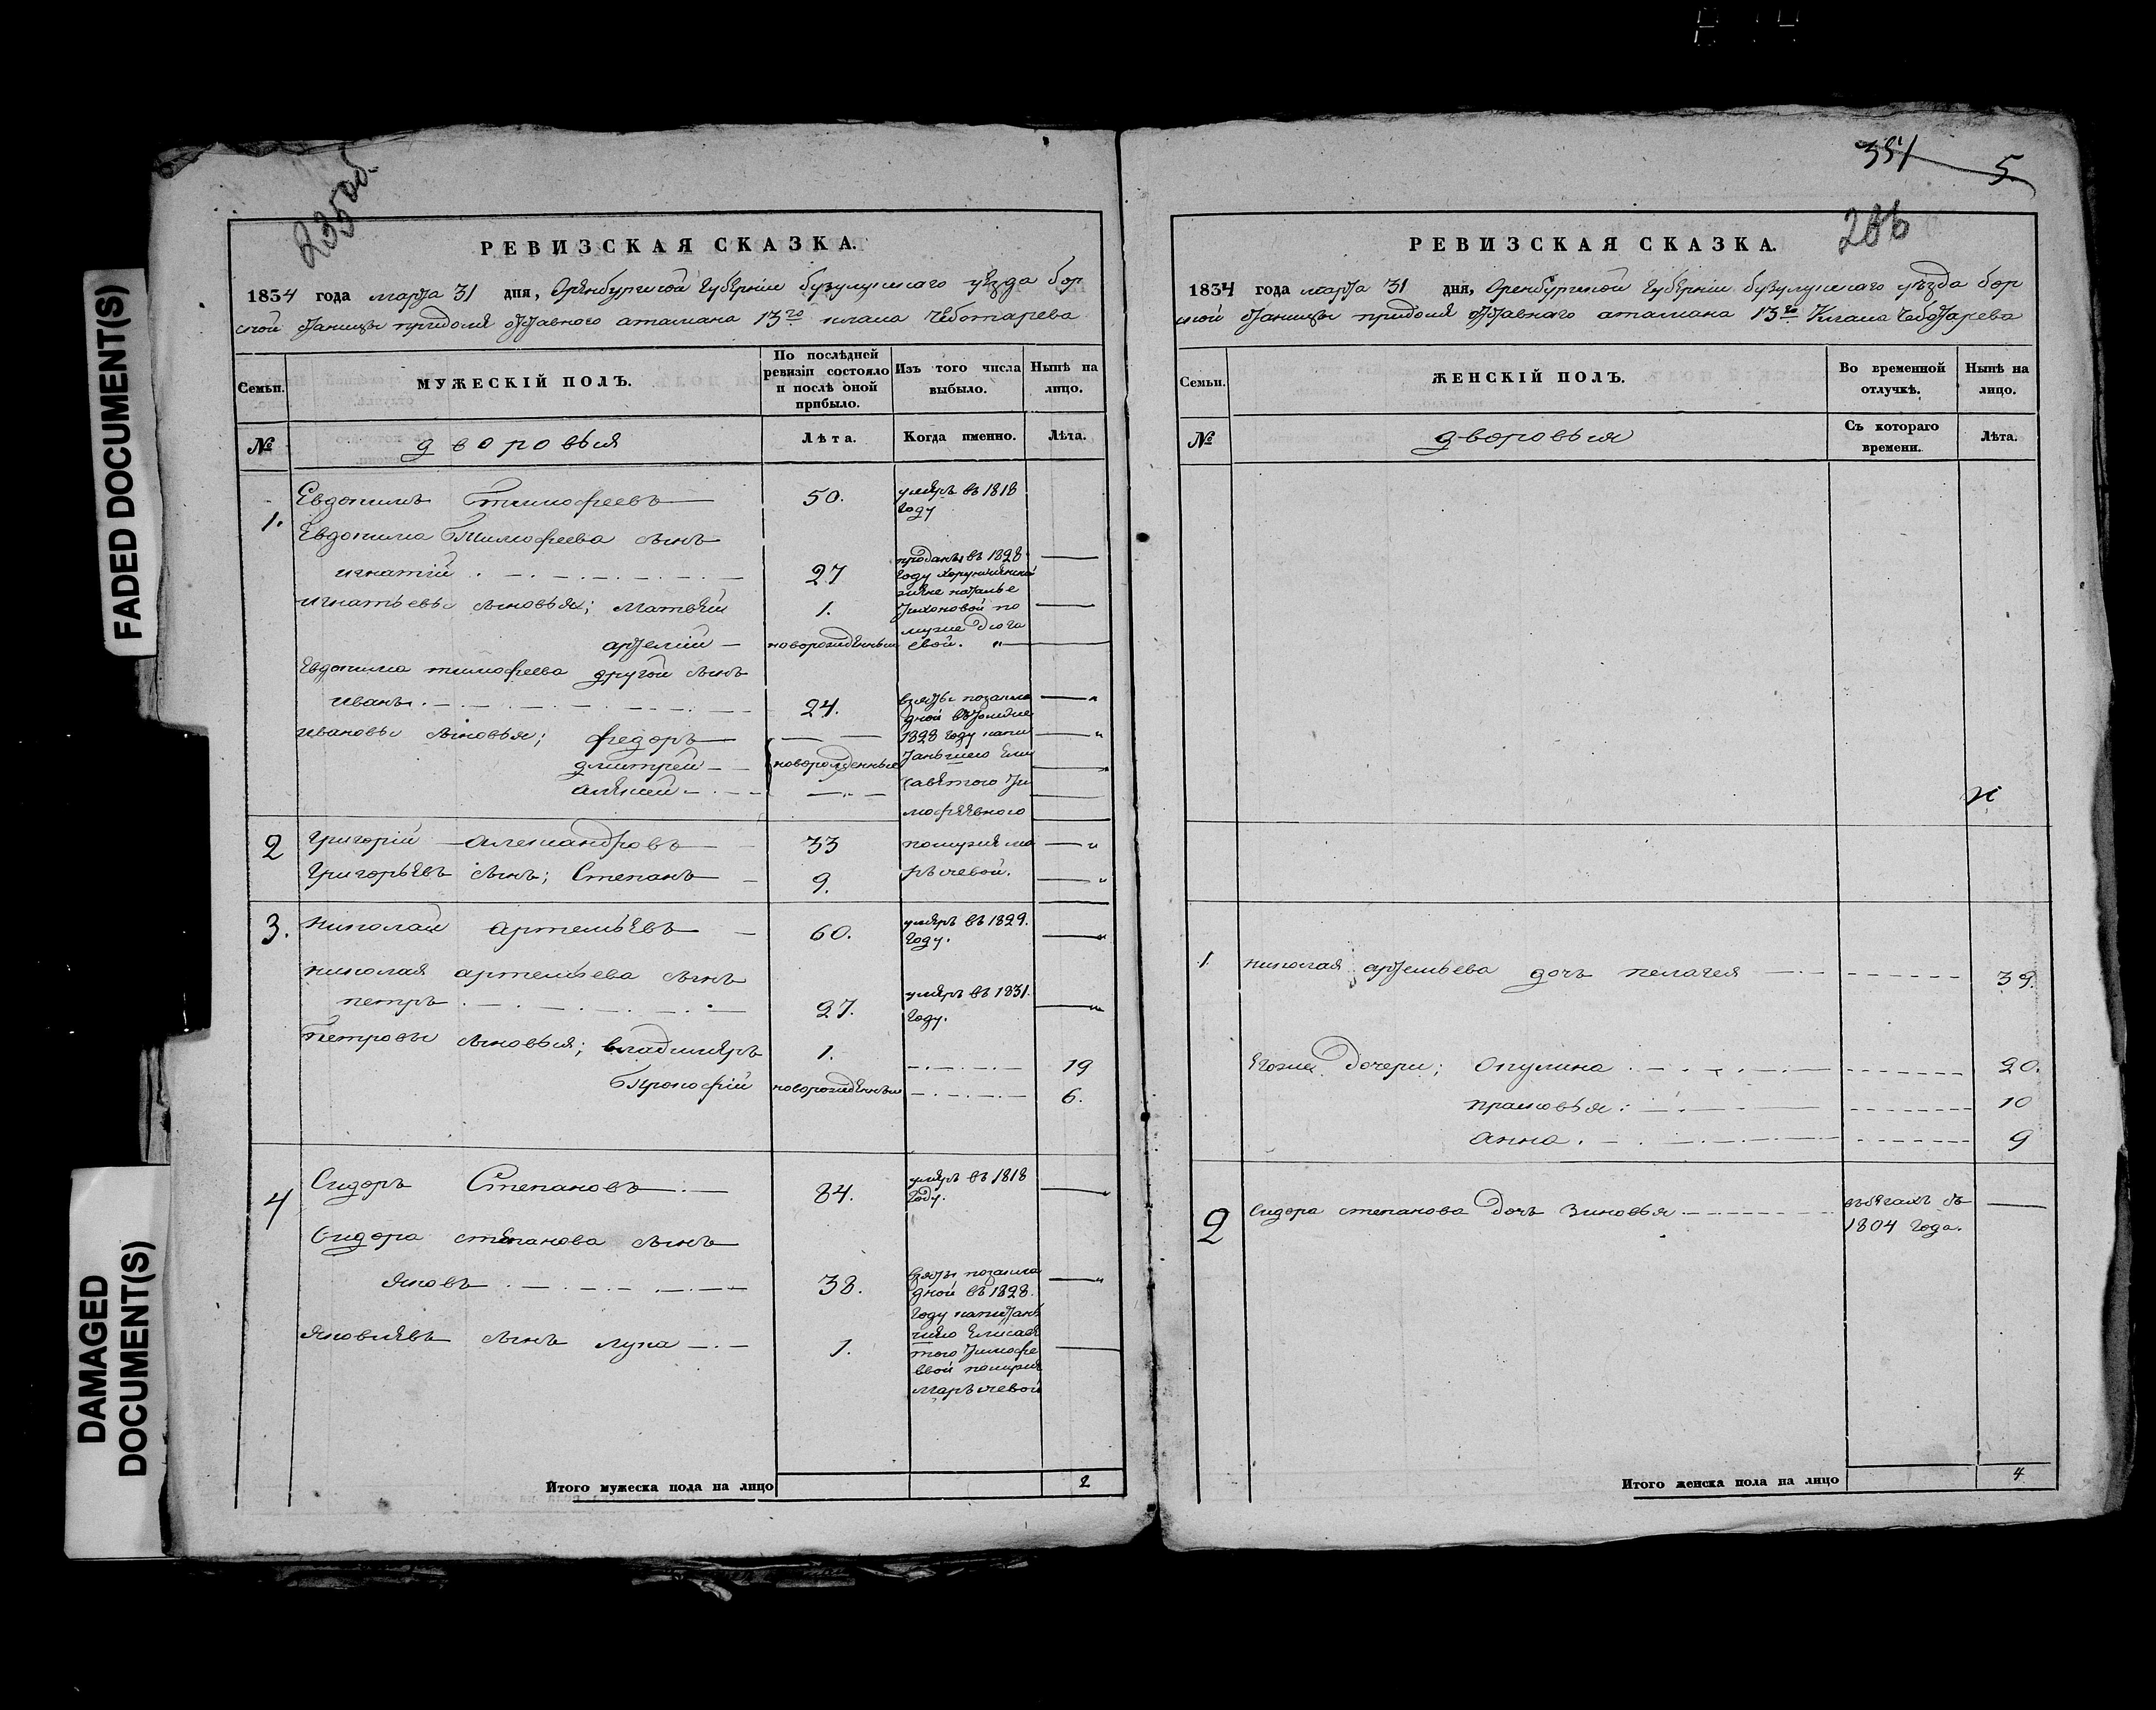 FADED DOCUMENT(S)
DAMAGED
DOCUMENT(S)
235 об.
РЕВИЗСКАЯ СКАЗКА.
1834 года марта 31 дня, Оренбургской Губернiи бузулукскаго уѣзда бор
ской станицы придомѣ отставного атамана 13го класа Чеботарева
Семьи.
МУЖЕСКIЙ ПОЛЪ.
По послѣдней ревизiи состояло и послѣ оной прибыло.
Изъ того числа выбыло.
Нынѣ на лицо.
№
дворовыя
Лѣта.
Когда именно.
Лѣта.
1. Евдокимъ Тимофеевъ 50. умеръ въ 1818
году
Евдокима Тимофеева сынъ
игнатiй 27 проданы въ 1828
году хорунжинской
жене наталье
игнатьевы сыновья; Матвѣй 1. Тихоновой по
муже Дюга
артемiй новорожденный евой.
Евдокима тимофеева другой сынъ
иванъ 24. взяты позакла
дной въ томже
ивановы сыновья; федоръ 1828 году капи
дмитрей новорожденные таньшею Ели
алексей саветою Ти
мофеевною
2 Григорiй Александровъ 33 помужѣ ма
Григорьевъ сынъ; Степанъ 9. рычевой.
3. николай артемьевъ 60. умеръ въ 1829.
году.
николая артемьева сынъ
петръ 27. умеръ въ 1831.
году.
Петровы сыновья; владимеръ 1. 19
Прокофiй новорожденный 6.
4 Сидоръ Степановъ 84. умеръ въ 1818
году.
Сидора степанова сынъ
яковъ 38. взяты позакла
дной въ 1828.
году капитань
яковлевъ сынъ лука 1. шею Елисаве
тою Тимофе
евой помужѣ
марычевой
Итого мужеска пола на лицо 2
351 5
286
РЕВИЗСКАЯ СКАЗКА.
1834 года марта 31 дня, Оренбургской Губернiи бузулукскаго уѣзда бор
ской станицы придомѣ отставнаго атамана 13го Класа Чеботарева
Семьи.
ЖЕНСКIЙ ПОЛЪ.
Во временной отлучкѣ.
Нынѣ на лицо.
№
дворовыя
Съ котораго времени.
Лѣта.
1. николая артемьева дочь пелагея 39.
Егоже Дочери; Окулина 20.
прасковья 10
анна 9
2 Сидора степанова Дочь Зиновья въбегахъ съ
1804 года.
Итого женска пола на лицо 4